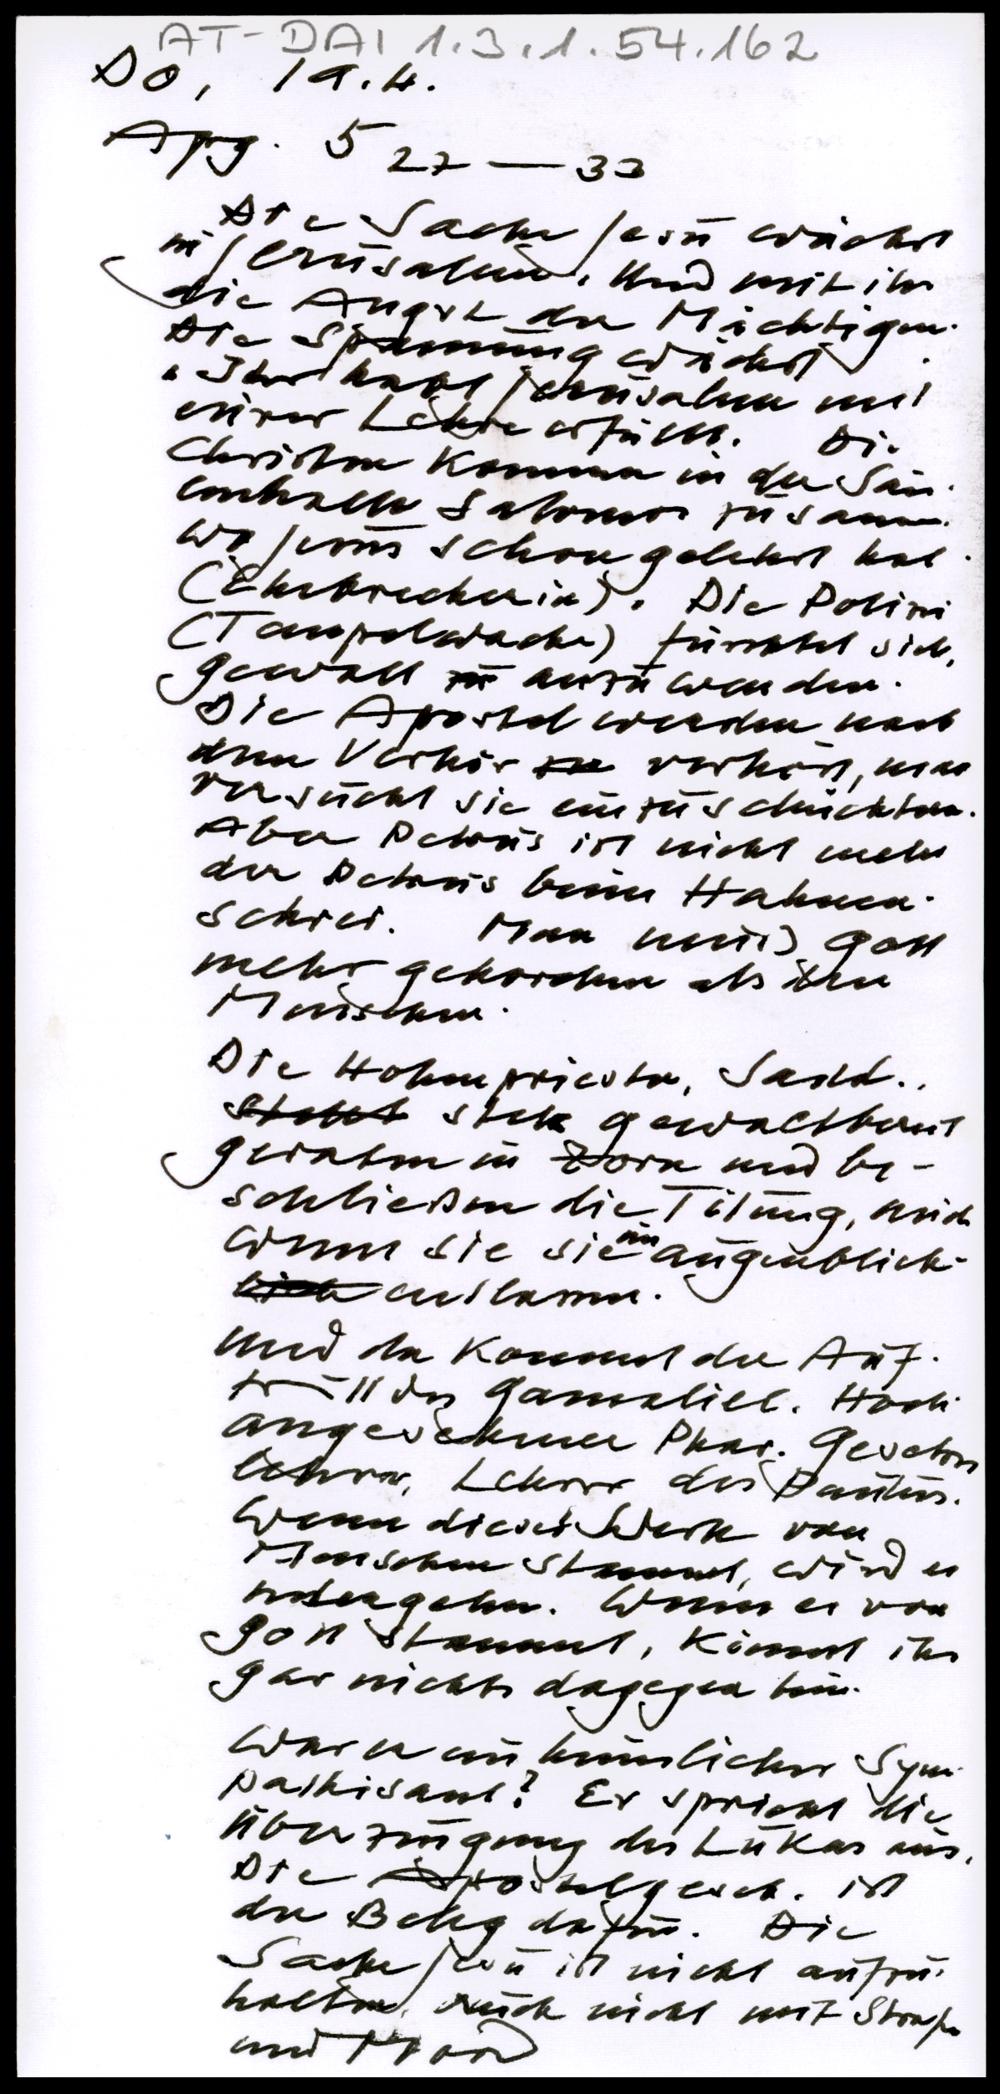 AT-DAI 1.3.1.54.162
Do, 19.4.
Apg. 5 27 — 33
Die Sache Jesu wächst
in Jerusalem. Und mit ihr
die Angst der Mächtigen.
Die Spannung wächst.
"Ihr habt Jerusalem mit
eurer Lehre erfüllt. Die
Christen kommen in der Säu-
lenhalle Salomos zusamm.
wo Jesus schon gelehrt hat
(Ehebrecherin). Die Polizei
(Tempelwache) fürchtet sich,
Gewalt zu anzuwenden.
Die Apostel werden nach
dem Verhör verhört, man
versucht sie einzuschüchtern.
Aber Petrus ist nicht mehr
der Petrus beim Hahnen-
schrei. Man muß Gott
mehr gehorchen als den
Menschen.
Die Hohenpriester, Sadd..
stets gewaltbereit
geraten in Zorn und be-
schließen die Tötung, auch
wenn sie sie im Augenblick
lich entlassen.
Und da kommt der Auf-
tritt des Gamaliel. Hoch
angesehener Phar. Gesetzes
lehrer, Lehrer des Paulus.
Wenn dieses Werk von
Menschen stammt, wird es
untergehen. Wenn es von
Gott stammt, könnt ihr
gar nichts dagegen tun.
War er ein heimlicher Sym-
pathisant? Er spricht die
Überzeugung des Lukas aus.
Die Apostelgesch. ist
der Beleg dafür. Die
Sache Jesu ist nicht aufzu-
halten, auch nicht mit Strafe
und Mord